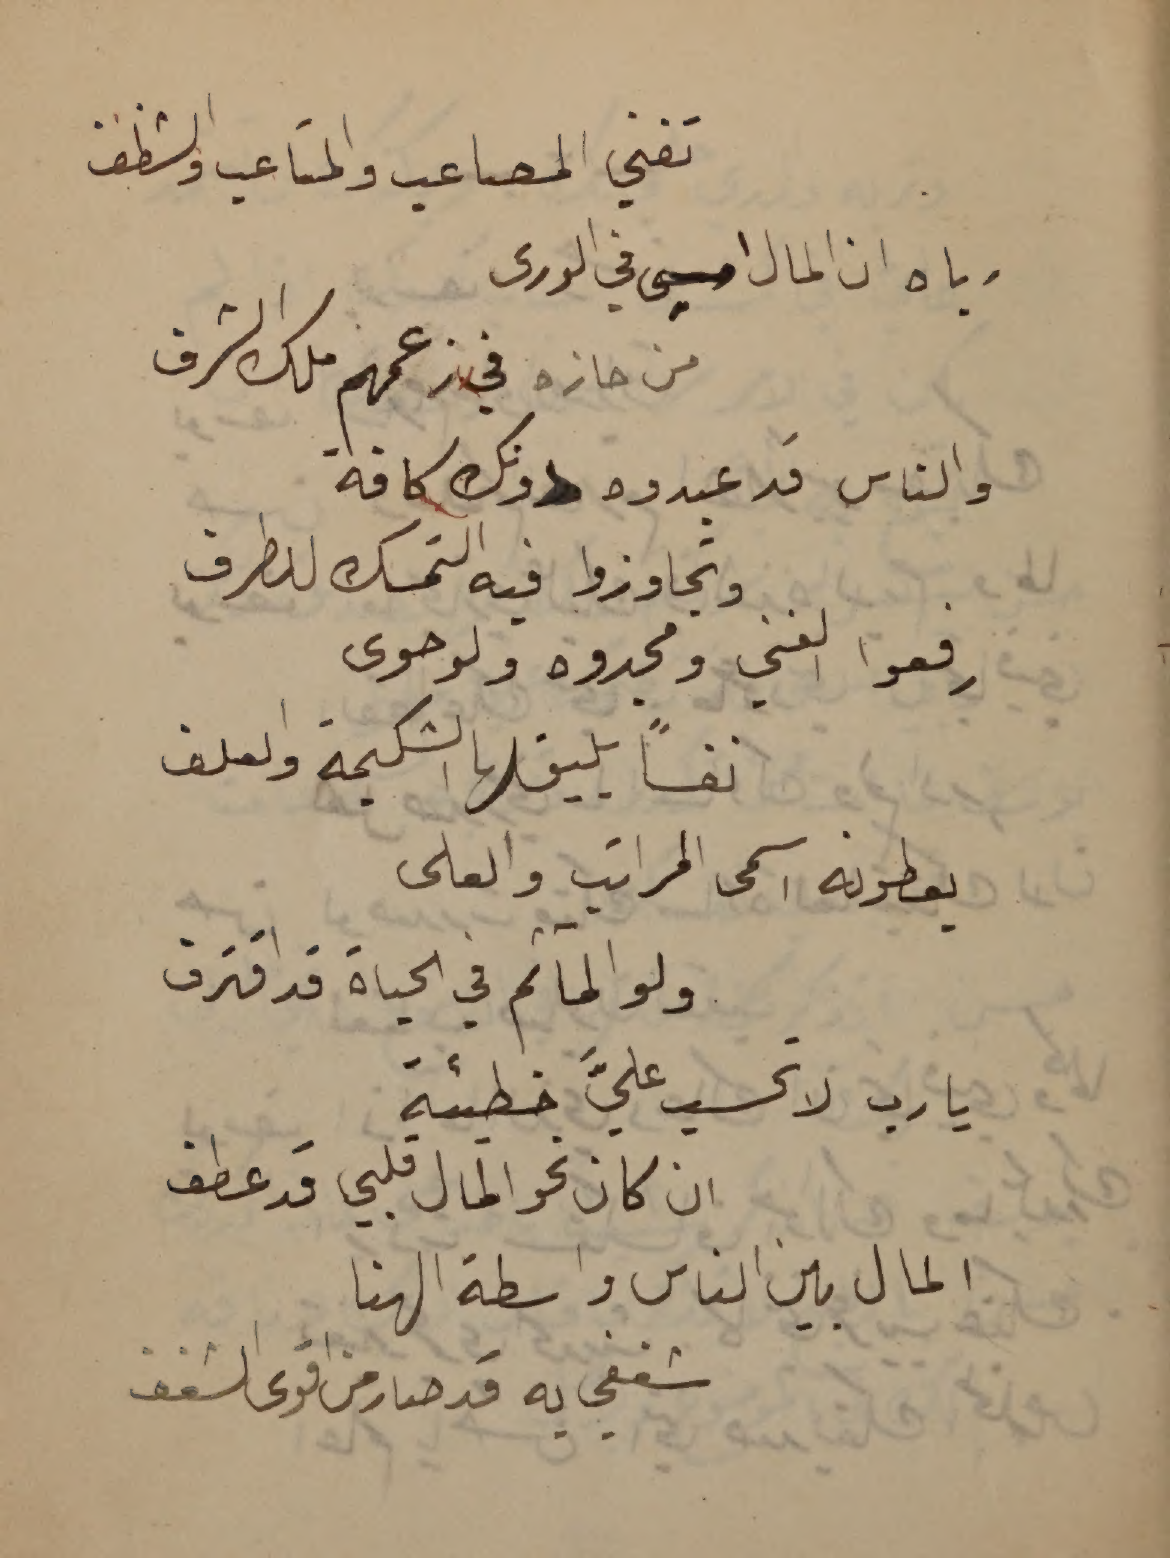 تفني المصاعب والمتاعب والشظف
رباه ان المال امسى في الورى
من حازه في زعمهم ملك الشرف
والناس قد عبدوه دونك كافة
وتجاوزوا فيه التمسك للطرف
رفعوا الغني ومجدوه ولو حوى
نفساً يليق لها الشكيمة والعلف
يعطونه اسمى المراتب والعلى
ولو المآثم في الحياة قد اقترف
يارب لا تحسب عليَّ خطيئة
ان كان نحو المال قلبي قد عطف
المال بين الناس واسطة الهنا
شغفي به قد صار من اقوى الشغف